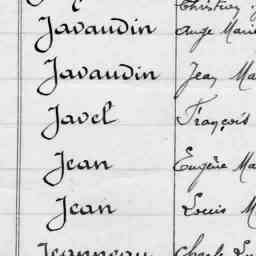 Javaudin Ange Marie
Javaudin Jean Ma
Javel François
Jean Eugène Ma
Jean Louis M
Jeanneau Charles